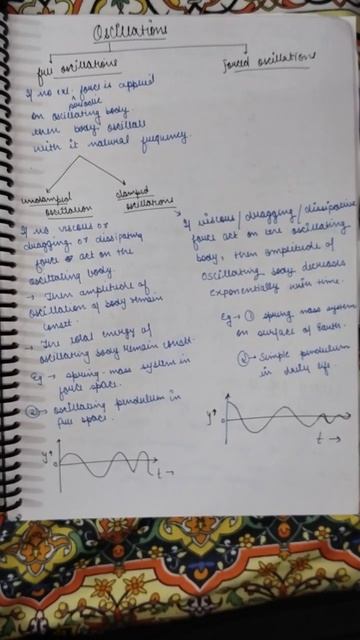 Oscillations
free oscillations
forced oscillations
If no ext. force is applied
periodic
on oscillating body.
then body oscillate
with it natural frequency.
undamped
oscillation
damped
oscillations
If no viscous or
dragging or dissipating
force act on the
oscillating body.
→ Then amplitude of
oscillation of body remain
const.
→ The total energy of
oscillating body remain const.
Eg → spring-mass system in
force space.
② → oscillating pendulum in
free space.
y↑
0
t →
If viscous / dragging / dissipative
force act on the oscillating
body, then amplitude of
oscillating body decreases
exponentially with time.
Eg → ① spring mass system
on surface of Earth.
② → Simple pendulum
in daily life
y↑
0
t →